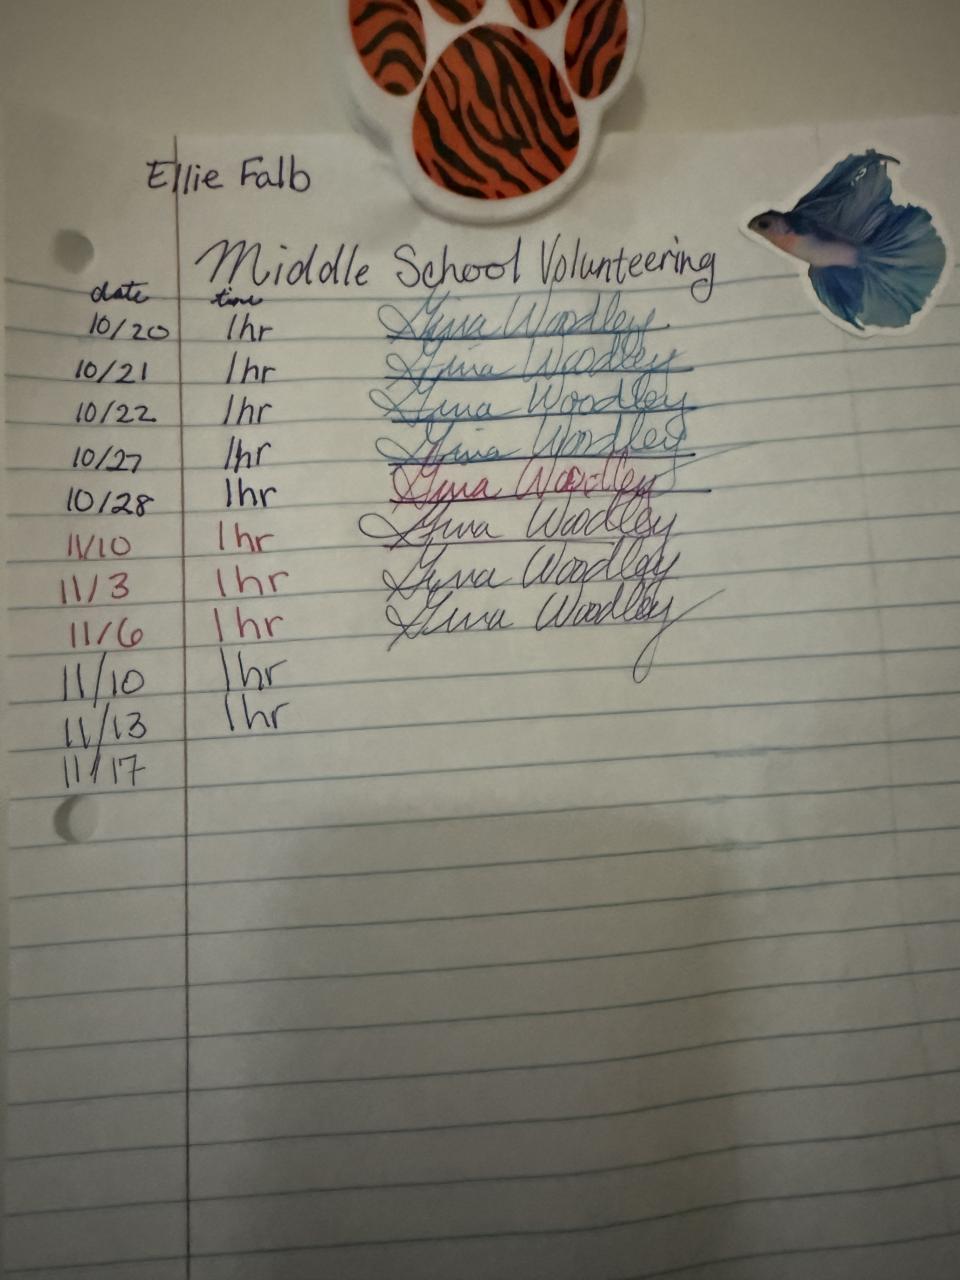 Ellie Falb
Middle School Volunteering
date time
10/20 1hr Gina Woodley
10/21 1hr Gina Woodley
10/22 1hr Gina Woodley
10/27 1hr Gina Woodley
10/28 1hr Gina Woodley
11/10 1hr Gina Woodley
11/3 1hr Gina Woodley
11/6 1hr Gina Woodley
11/10 1hr
11/13 1hr
11/17